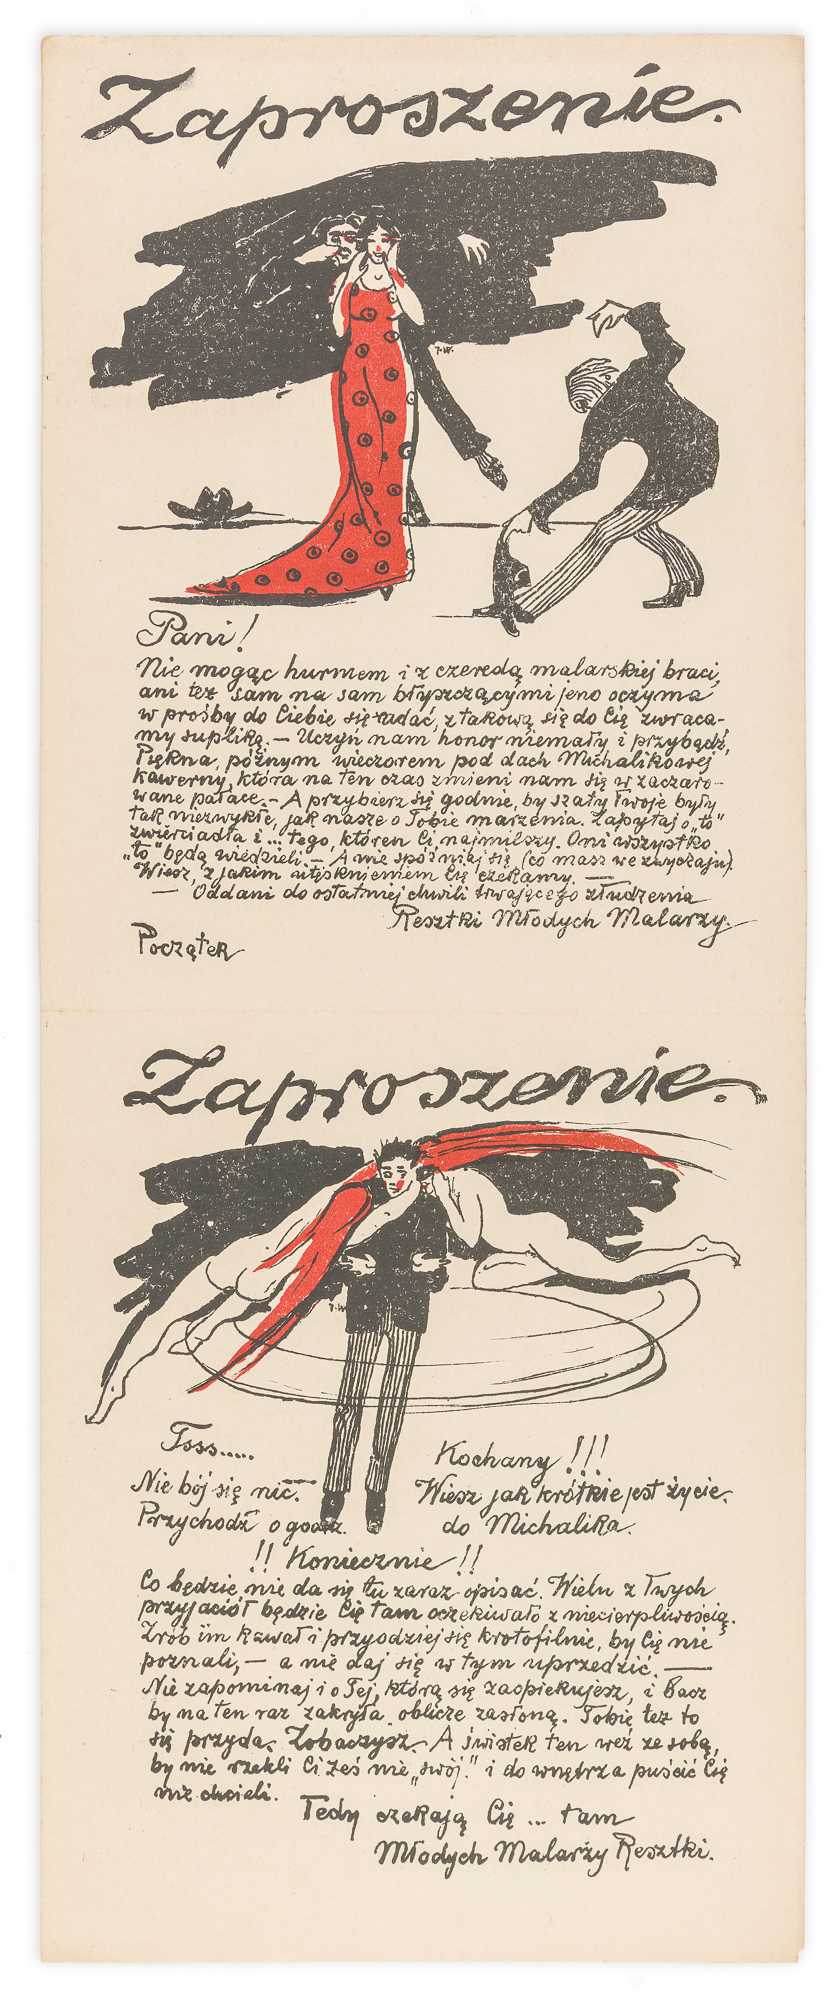 Zaproszenie.
J.W.
Pani!
Nie mogąc hurmem i z czeredą malarskiej braci,
ani też sam na sam błyszczącymi jeno oczyma
w prośby do Ciebie się udać, z takową się do Cię zwraca-
my supliką. — Uczyń nam honor niemały i przybądź,
Piękna, późnym wieczorem pod dach Michalikowej
kawerny, która na ten czas zmieni nam się w zaczaro-
wane pałace. — A przybierz się godnie, by szaty Twoje były
tak niezwykłe, jak nasze o Tobie marzenia. Zapytaj o „to"
zwierciadła i ... tego, któren Ci najmilszy. Oni wszystko
„to" będą wiedzieli. — A nie spóźniaj się (co masz we zwyczaju).
Wiesz, z jakim utęsknieniem Cię czekamy. —
— Oddani do ostatniej chwili trwającego złudzenia
Resztki Młodych Malarzy.
Początek
Zaproszenie.
J.W.
Tsss.....
Kochany!!!
Nie bój się nic.
Wiesz jak krótkie jest życie.
Przychodź o godz.
do Michalika.
!! Koniecznie !!
Co będzie nie da się tu zaraz opisać. Wielu z Twych
przyjaciół będzie Cię tam oczekiwało z niecierpliwością.
Zrób im kawał i przyodziej się krotofilnie, by Cię nie
poznali, — a nie daj się w tym uprzedzić. —
Nie zapominaj i o Tej, którą się zaopiekujesz, i bacz
by na ten raz zakryła oblicze zasłoną. Tobie też to
się przyda. Zobaczysz. — A świstek ten weź ze sobą,
by nie rzekli Ci żeś nie „swój." i do wnętrza puścić Cię
nie chcieli.
Tedy czekają Cię ... tam
Młodych Malarzy Resztki.